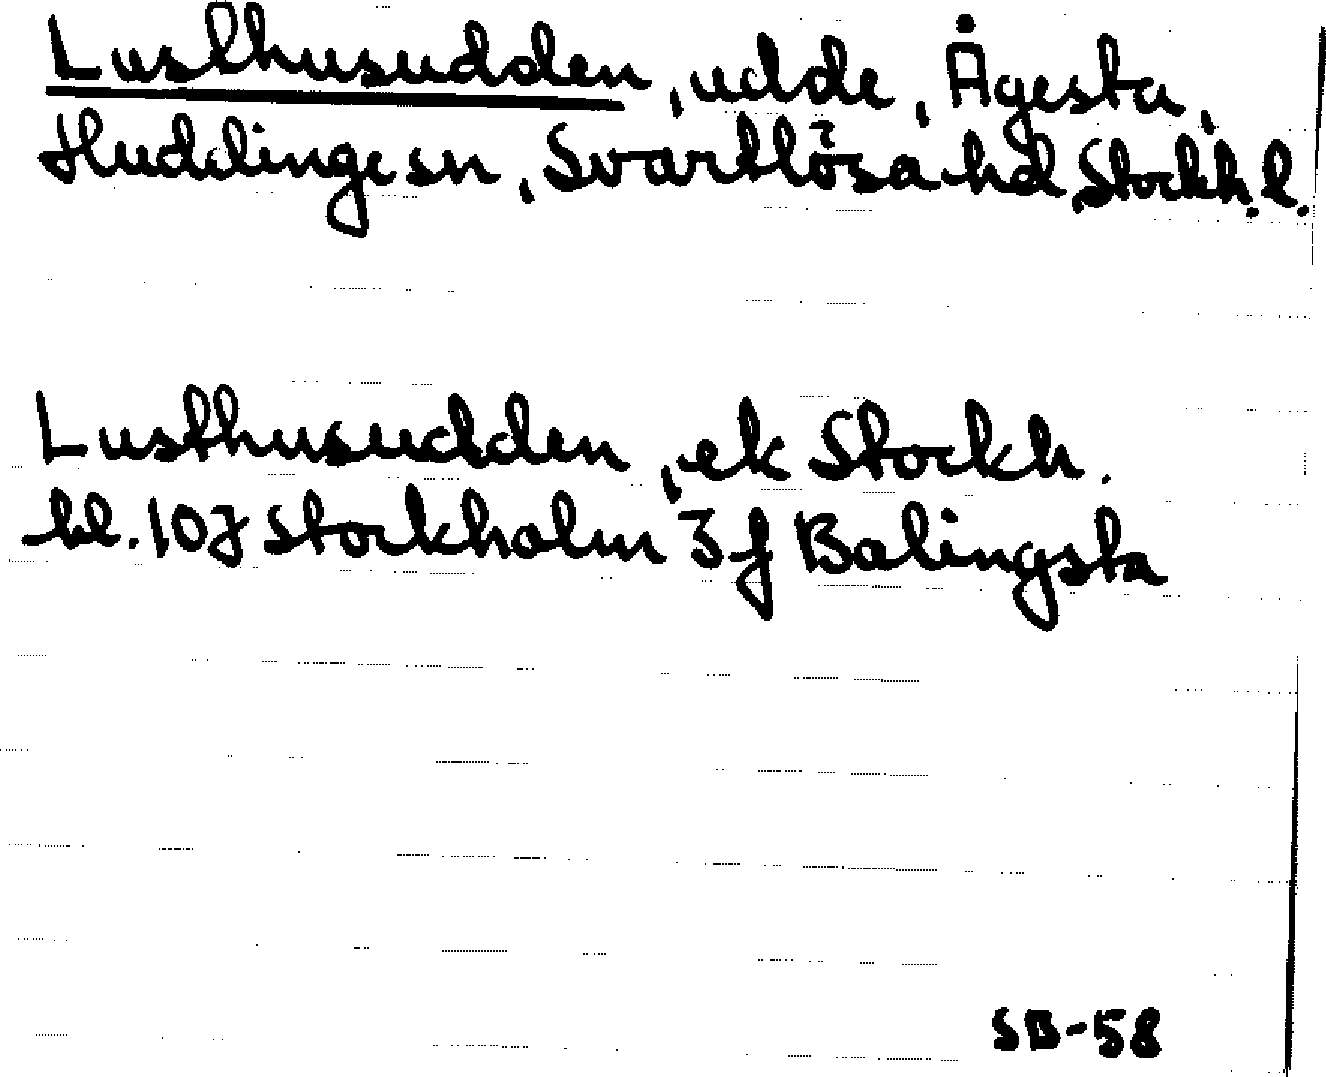 Lusthusudden, udde, Ågesta,
Huddinge sn, Svartlösa hd, Stockh. l.
Lusthusudden, ek Stockh.
bl. 10J Stockholm 3f Balingsta
SB-58